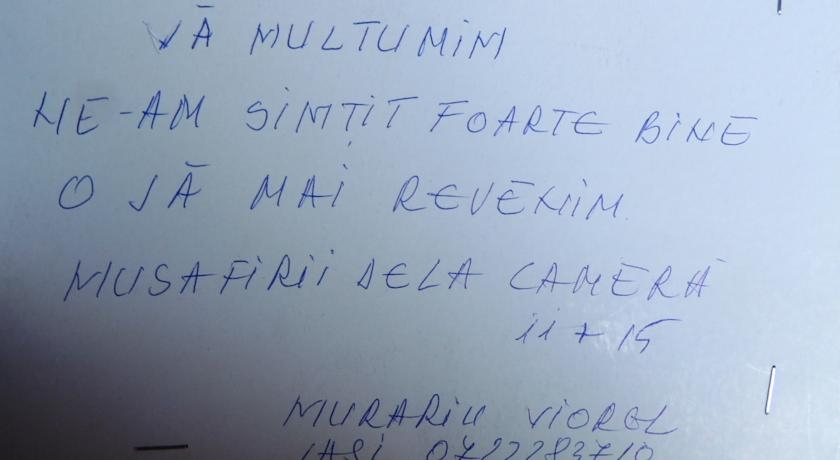 VĂ MULTUMIM
NE-AM SIMȚIT FOARTE BINE
O SĂ MAI REVENIM.
MUSAFIRII DELA CAMERĂ
11 + 15
MURARIU VIOREL
IAȘI 0722283710